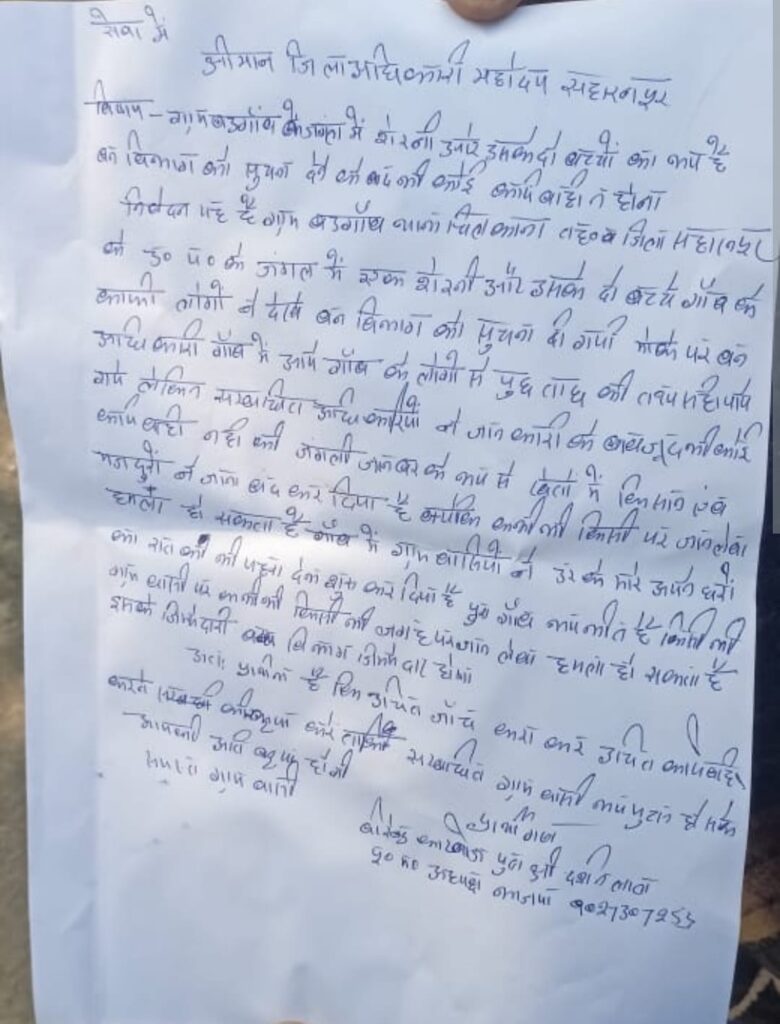 सेवा में
श्रीमान जिलाअधिकारी महोदय सहारनपुर
विषय - ग्राम बडगाँव के जंगल में शेरनी और उसके दो बच्चों का भय है
बन विभाग को सुचना देने के बाद भी कोई कार्यबाही न होना
निवेदन यह है ग्राम बडगाँव थाना चिलकाना तह० व जिला सहारनपुर
के उ० प० के जंगल में एक शेरनी और उसके दो बच्चे गाँव के
काफी लोगों ने देखे बन विभाग को सुचना दी गयी मोके पर बन
अधिकारी गाँव में आये गाँव के लोगो से पुछ ताछ की तथ्य सही पाये
गये लेकिन सम्बन्धित अधिकारियों ने जानकारी के बावजूद भी कोई
कार्यबाही नही की जंगली जानबर के भय से खेतों में किसान एंव
मजदुरों ने जाना बंद कर दिया है क्योंकि कभी भी किसी पर जानलेबा
हमला हो सकता है गाँव में ग्राम बासियों ने डर के मारे अपने घरों
का रात को भी पहरा देना शुरू कर दिया है पुरा गाँव भयभीत है किसी भी
ग्राम बासी पर कभी भी किसी भी जगह पर जान लेबा हमला हो सकता है
इसके जिम्मेदारी बन विभाग जिम्मेदार होगा
अतः प्रार्थना है कि उचित जाँच करा कर उचित कार्यबाही
करने की कृपा करें ताकि सम्बन्धित ग्राम बासी भय मुक्त हो सके
आपकी अति कृपा होगी
समस्त ग्राम बासी
प्रार्थी गण
पुत्र श्री
पू० म० अध्यक्ष भाजपा